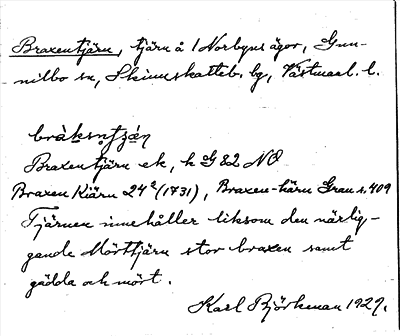 Braxentjärn, tjärn å 1 Norbyns ägor, Gun-
nilbo sn, Skinnskatteb. bg, Västmanl. l.
bràksn̥tʒán
Braxentjärn ek, h G 82 NO
Braxen Kiärn 24² (1731), Braxen-kärn Grau s. 409
Tjärnen innehåller liksom den närlig-
gande Mörttjärn stor braxen samt
gädda och mört.
Karl Björkman 1929.